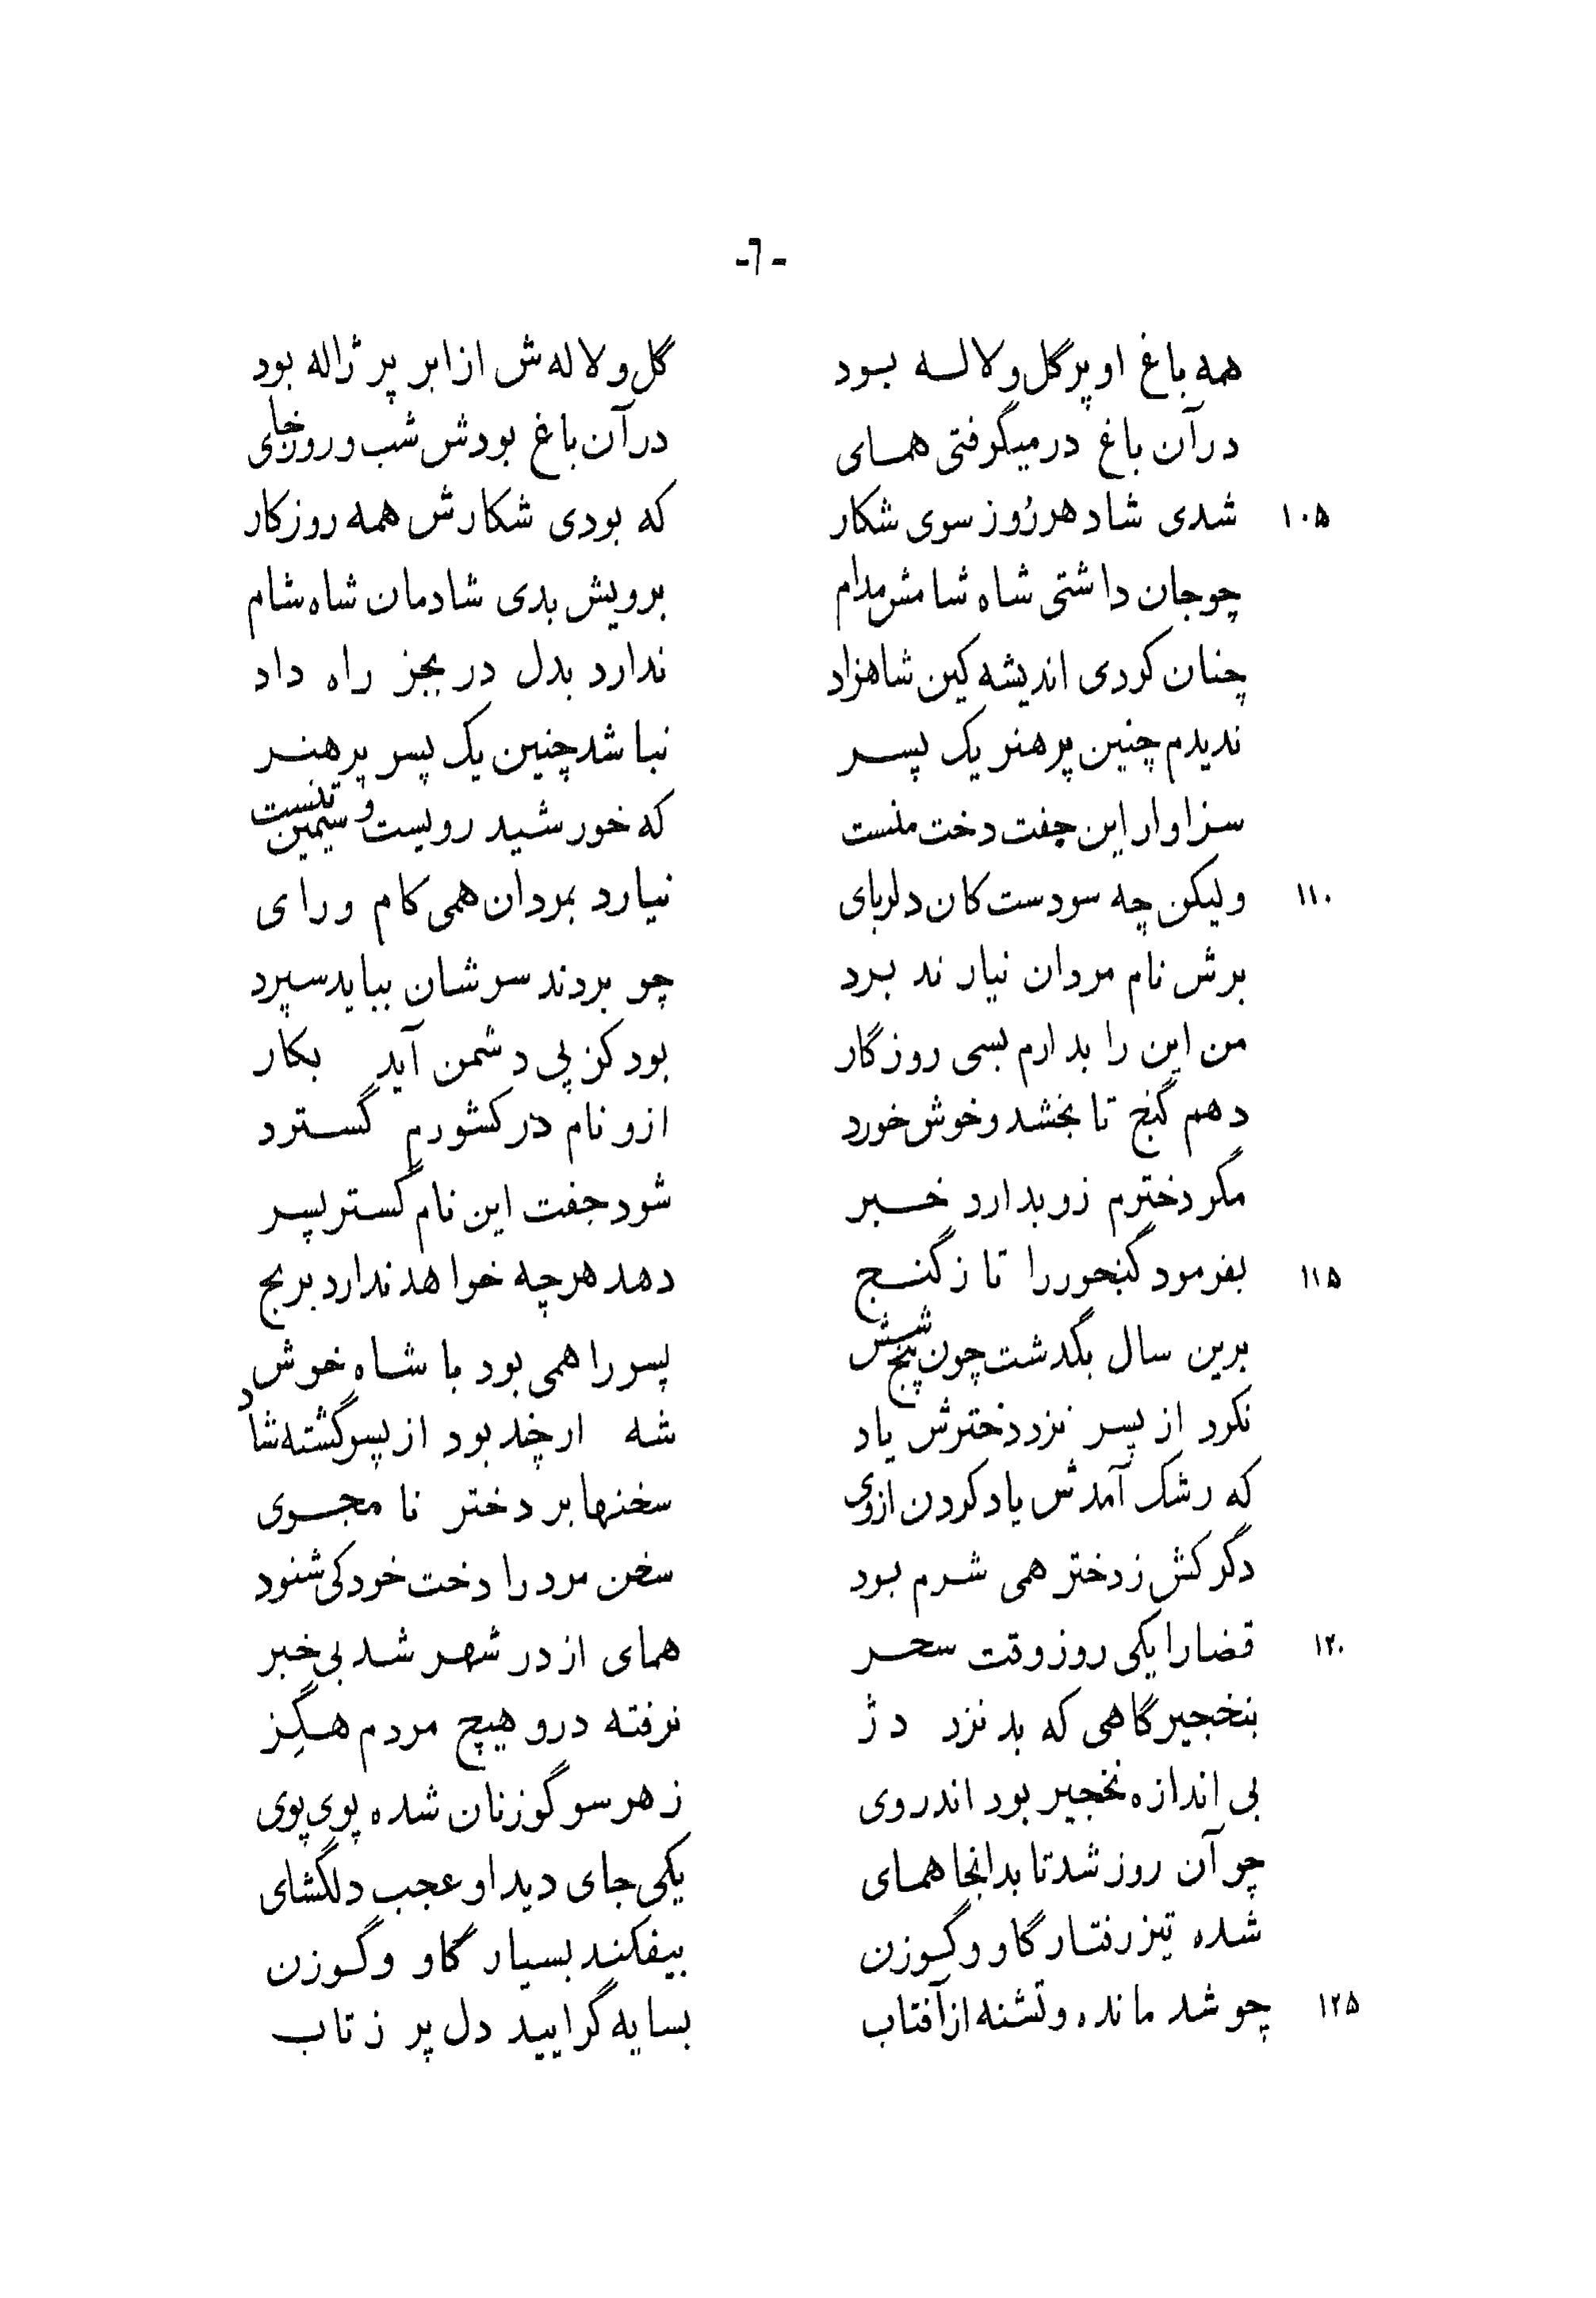 -٦-
همه باغ او پر گل و لاله بود گل و لاله ش از ابر پر ژاله بود
در آن باغ در میگرفتی همای در آن باغ بودش شب و روز جای
۱۰۵ شدی شاد هر روز سوی شکار که بودی شکارش همه روز کار
چو جان داشتی شاه شامش مدام برویش بدی شادمان شاه شام
چنان کردی اندیشه کین شاهزاد ندارد بدل در بجز راه داد
ندیدم چنین پر هنر یک پسر نباشد چنین یک پسر پر هنر
سزاوار این جفت دخت منست که خورشید رویست و سیمین تنست
۱۱۰ ولیکن چه سودست کان دلربای نیارد بمردان همی کام و رای
برش نام مردان نیارند برد چو بردند سرشان بباید سپرد
من این را بدارم بسی روزگار بود کز پی دشمن آید بکار
دهم گنج تا بخشد و خوش خورد ازو نام در کشورم گسترد
مگر دخترم زو بدارد خبر شود جفت این نام گستر پسر
۱۱۵ بفرمود گنجور را تا ز گنج دهد هرچه خواهد ندارد برنج
برین سال بگذشت چون پنج شش پسر را همی بود با شاه خوش
نکرد از پسر نزد دخترش یاد شه ارچند بود از پسر گشته شاد
که رشک آمدش یاد کردن ازوی سخنها بر دختر نامجوی
دگر کش ز دختر همی شرم بود سخن مرد را دخت خود کی شنود
۱۲۰ قضا را یکی روز وقت سحر همای از در شهر شد بی خبر
بنخجیر گاهی که بد نزد دژ نرفته درو هیچ مردم هگز
بی اندازه نخجیر بود اندروی ز هر سو گوزنان شده پوی پوی
چو آن روز شد تا بدانجا همای یکی جای دید او عجب دلگشای
شده تیز رفتار گاو و گوزن بیفکند بسیار گاو و گوزن
۱۲۵ چو شد مانده و تشنه از آفتاب بسایه گرایید دل پر ز تاب